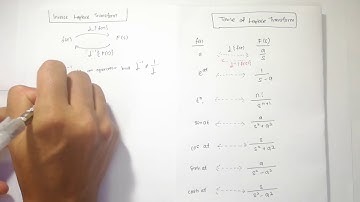 Inverse Laplace Transform
L{f(t)}
f(t) F(s)
L⁻¹{F(s)}
an operator but L⁻¹ ≠ 1/L
Table of Laplace Transform
f(t) F(s)
L{f(t)}
a a/s
L⁻¹{F(s)}
e^at 1/(s-a)
tⁿ n!/sⁿ⁺¹
sin at a/(s²+a²)
cos at s/(s²+a²)
sinh at a/(s²-a²)
cosh at s/(s²-a²)